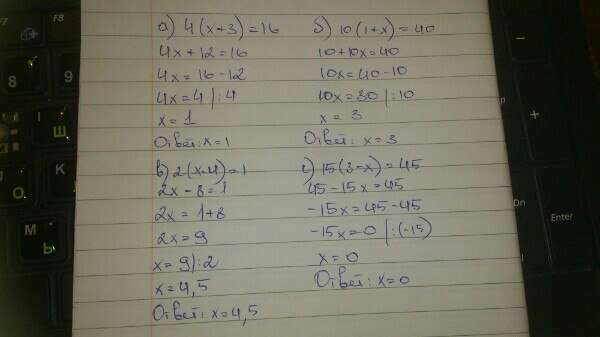 а) 4(x+3)=16
4x+12=16
4x=16-12
4x=4 |:4
x=1
Ответ: x=1
б) 10(1+x)=40
10+10x=40
10x=40-10
10x=30 |:10
x=3
Ответ: x=3
в) 2(x-4)=1
2x-8=1
2x=1+8
2x=9
x=9|:2
x=4,5
Ответ: x=4,5
г) 15(3-x)=45
45-15x=45
-15x=45-45
-15x=0 |:(-15)
x=0
Ответ: x=0
F7
8
9
И
Ш
О
М
Ь
+
Dn
Enter